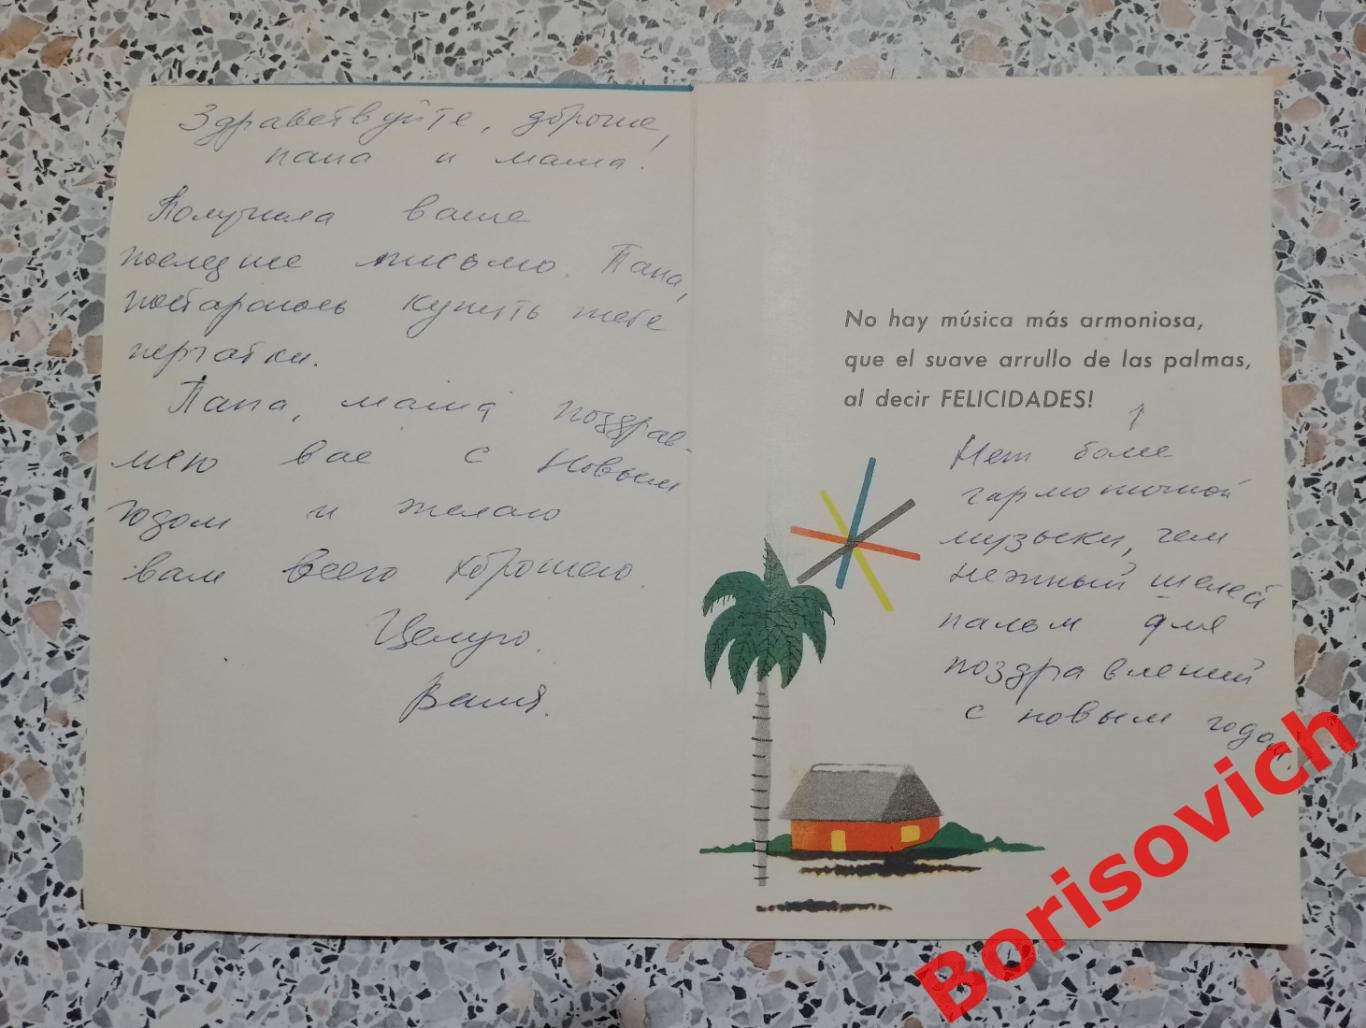 Здравствуйте, дорогие,
папа и мама!
Получила ваше
последнее письмо. Папа,
постараюсь купить тебе
перчатки.
Папа, мама, поздрав-
ляю вас с Новым
годом и желаю
вам всего хорошего.
Целую.
Валя.
No hay música más armoniosa,
que el suave arrullo de las palmas,
al decir FELICIDADES!
↑
Нет более
гармоничной
музыки, чем
нежный шелест
пальм для
поздравлений
с новым годом!
Borisovich